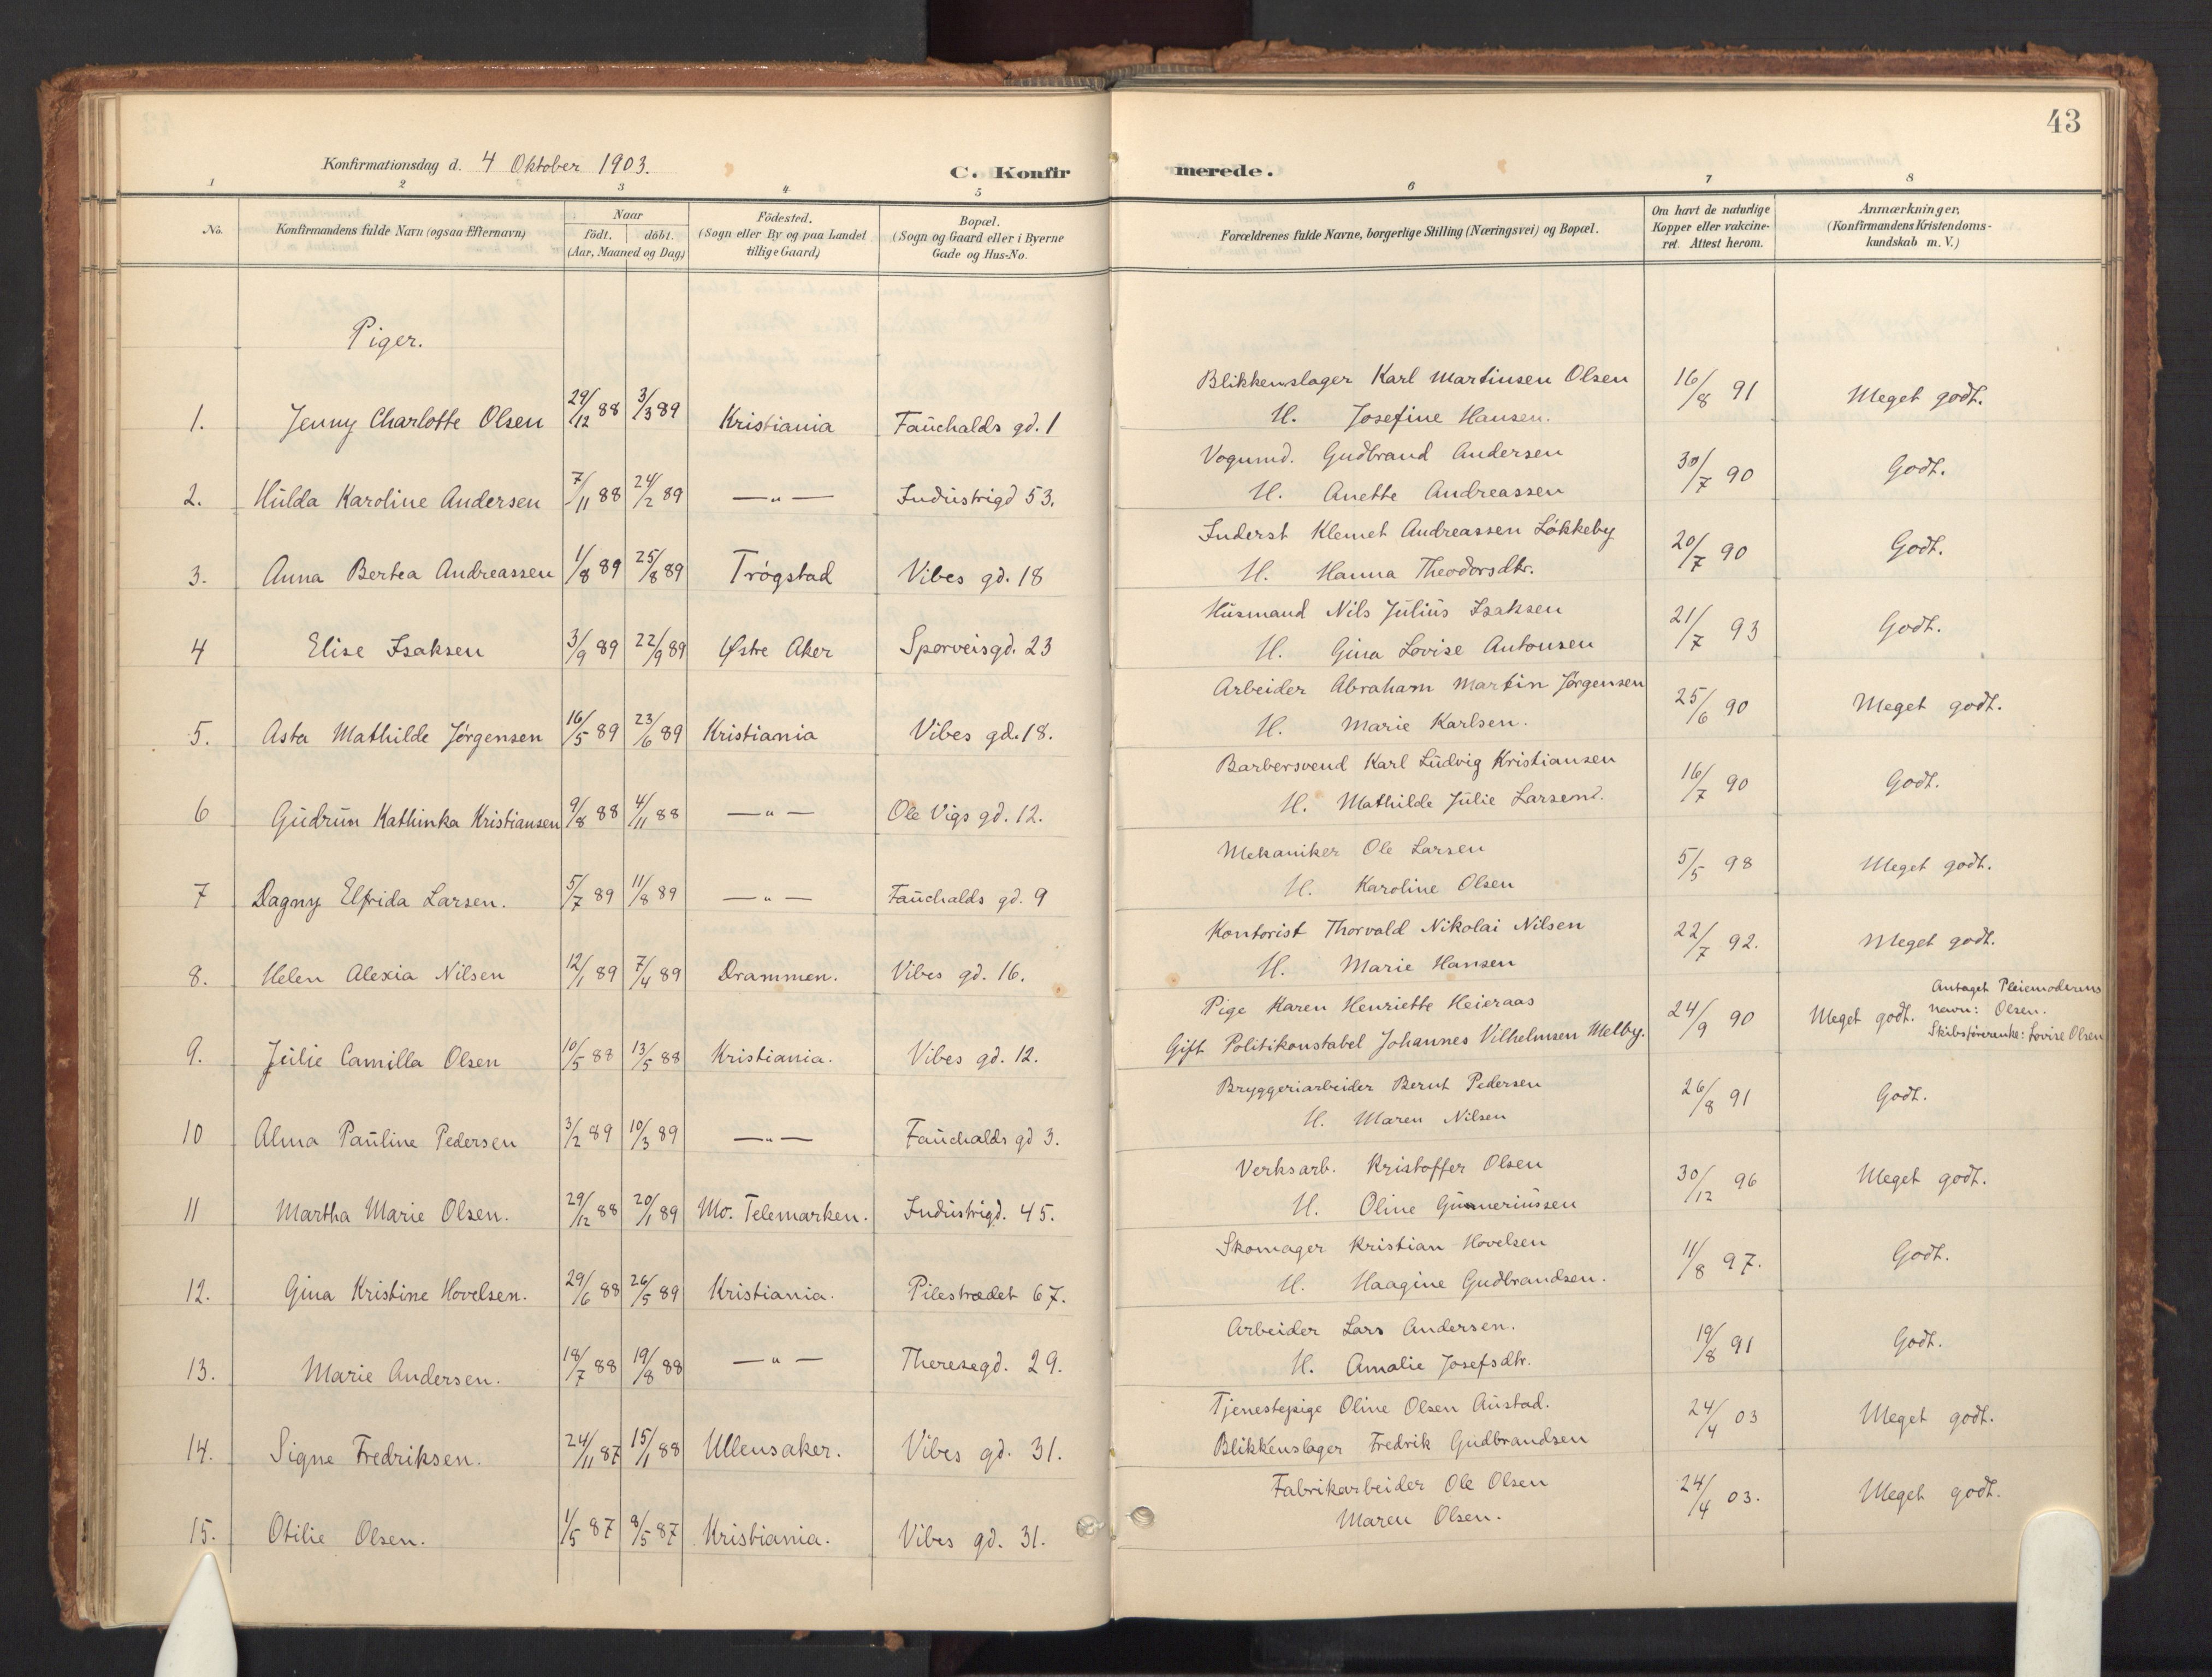 43
Konfirmationsdag d. 4 Oktober 1903. C. Konfirmerede.
1 2 3 4 5 6 7 8
No. Konfirmandens fulde Navn (ogsaa Efternavn) Naar födt. döbt. (Aar, Maaned og Dag) Födested. (Sogn eller By og paa Landet tillige Gaard) Bopæl. (Sogn og Gaard eller i Byerne Gade og Hus-No. Forældrenes fulde Navne, borgerlige Stilling (Næringsvei) og Bopæl. Om havt de naturlige Kopper eller vakcineret. Attest herom. Anmærkninger, (Konfirmandens Kristendomskundskab m. V.)
Piger.
1. Jenny Charlotte Olsen 29/12 88 3/3 89 Kristiania Fauchalds gd. 1 Blikkenslager Karl Martinsen Olsen 16/8 91 Meget godt.
H. Josefine Hansen.
2. Hulda Karoline Andersen 7/11 88 24/2 89 — " — Industrigd 53. Vognmd. Gudbrand Andersen 30/7 90 Godt.
H. Anette Andreassen
3. Anna Bertea Andreassen 1/8 89 25/8 89 Trögstad Vibes gd. 18 Inderst Klemet Andreassen Løkkeby 20/7 90 Godt.
H. Hanna Theodorsdtr.
4 Elise Isaksen 3/9 89 22/9 89 Østre Aker Sporveisgd. 23 Husmand Nils Julius Isaksen 21/7 93 Godt.
H. Gina Lovise Antonsen
5. Asta Mathilde Jörgensen 16/5 89 23/6 89 Kristiania Vibes gd. 18. Arbeider Abraham Martin Jörgensen 25/6 90 Meget godt.
H. Marie Karlsen.
6 Gudrun Kathinka Kristiansen 9/8 88 4/11 88 — " — Ole Vigs gd. 12. Barbersvend Karl Ludvig Kristiansen 16/7 90 Godt.
H. Mathilde Julie Larsen.
7 Dagny Elfrida Larsen. 5/7 89 11/8 89 — " — Fauchalds gd. 9 Mekaniker Ole Larsen 5/5 98 Meget godt.
H. Karoline Olsen
8. Helen Alexia Nilsen 12/1 89 7/4 89 Drammen. Vibes gd. 16. Kontorist Thorvald Nikolai Nilsen 22/7 92. Meget godt.
H. Marie Hansen
9. Julie Camilla Olsen 10/5 88 13/5 88 Kristiania. Vibes gd. 12. Pige Karen Henriette Heieraas 24/9 90 Meget godt. Antaget Pleiemoderens navn: Olsen. Skibsførerenke: Lovise Olsen
Gift Politikonstabel Johannes Vilhelmsen Melby.
10 Alma Pauline Pedersen 3/2 89 10/3 89 — " — Fauchalds gd 3. Bryggeriarbeider Bernt Pedersen 26/8 91 Godt.
H. Maren Nilsen
11 Martha Marie Olsen. 29/12 88 20/1 89 Mo. Telemarken. Industrigd. 45. Verksarb. Kristoffer Olsen 30/12 96 Meget godt.
H. Oline Gunneriussen
12. Gina Kristine Hovelsen. 29/6 88 26/5 89 Kristiania. Pilestrædet 67. Skomager Kristian Hovelsen 11/8 97. Godt.
H. Haagine Gudbrandsen.
13. Marie Andersen. 18/7 88 19/8 88 — " — Theresegd. 29. Arbeider Lars Andersen. 19/8 91 Godt.
H. Amalie Josefsdtr.
14. Signe Fredriksen. 24/11 87 15/1 88 Ullensaker. Vibes gd. 31. Tjenestepige Oline Olsen Austad. 24/4 03 Meget godt.
Blikkenslager Fredrik Gudbrandsen
15. Otilie Olsen. 1/5 87 8/5 87 Kristiania. Vibes gd. 31. Fabrikarbeider Ole Olsen 24/4 03. Meget godt.
Maren Olsen.